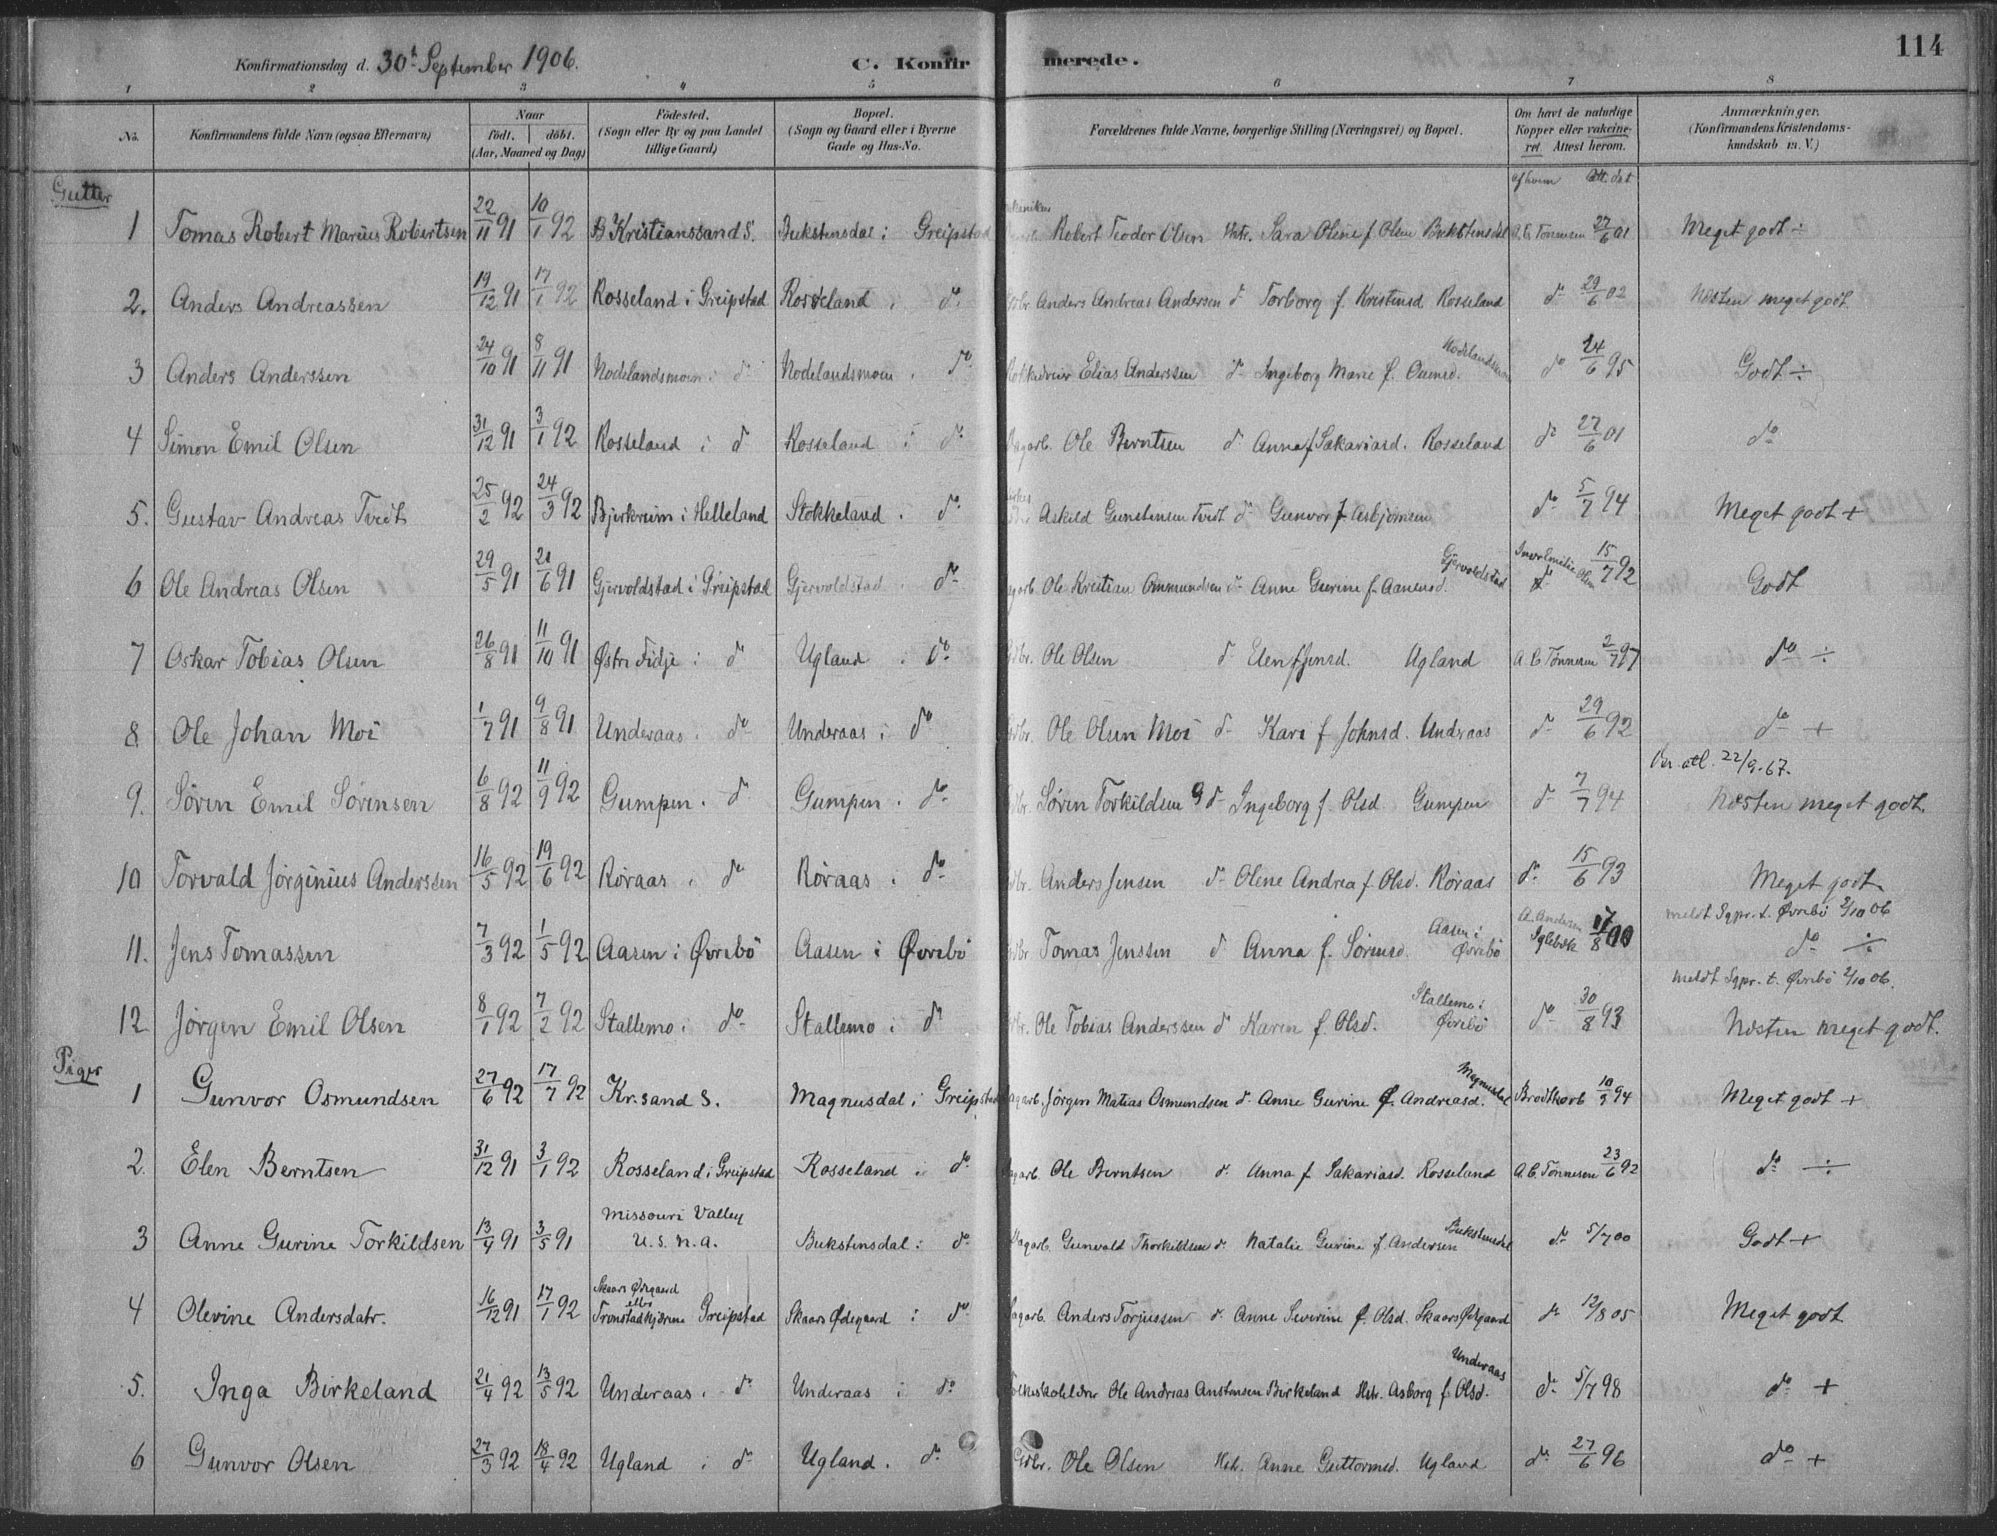 114
Konfirmationsdag d. 30t September 1906. C. Konfirmerede.
1 2 3 4 5 6 7 8
No. Konfirmandens fulde Navn (ogsaa Efternavn) Naar født. døbt. (Aar, Maaned og Dag) Födested. (Sogn eller By og paa Landet tillige Gaard) Bopæl. (Sogn og Gaard eller i Byerne Gade og Hus-No. Forældrenes fulde Navne, borgerlige Stilling (Næringsvei) og Bopæl. Om havt de naturlige Kopper eller vakcineret. Attest herom. Anmærkninger. (Konfirmandens Kristendomskundskab m. V.)
Gutter af hvem Att. dat
1 Tomas Robert Marius Robertsen 22/11 91 10/1 92 Kristianssand S. Bukstensdal i Greipstad Robert Teodor Olsen Hstr. Sara Oline f Olsen Bukstensdal A. C. Tønnesen 27/6 01 Meget godt ÷
2. Anders Andreassen 19/12 91 17/1 92 Rosseland i Greipstad Rosseland i do Gdbr. Anders Andreas Andersen do Torborg f. Kristensd Rosseland do 29/6 02 Næsten meget godt
3 Anders Anderssen 24/10 91 8/11 91 Nodelandsmoen i do Nodelandsmoen i do Elias Anderssen do Ingeborg Marie f. Nodelandsmoen do 24/6 95 Godt ÷
4 Simon Emil Olsen 31/12 91 3/1 92 Rosseland i do Rosseland i do Dagarb. Ole Berntsen do Anna f Sakariasd. Rosseland do 27/6 01 do
5. Gustav Andreas Tvedt 25/2 92 24/3 92 Bjerkreim i Helleland Stokkeland i do Askild Gunstensen Tvedt do Gunvor f Asbjørnsen do 5/7 94 Meget godt +
6 Ole Andreas Olsen 29/5 91 21/6 91 Gjervoldstad i Greipstad Gjervoldstad i do Dagarb. Ole Kristian Ommundsen do Anne Gurine f. Aanensd. Gjervoldstad 15/7 92 Godt
7 Oskar Tobias Olsen 26/8 91 11/10 91 Østre Fidje i do Ugland i do Gdbr. Ole Olsen do Elen f Jensd. Ugland A. C. Tønnesen 2/7 97 do ÷
8. Ole Johan Moi 1/7 91 9/8 91 Underaas i do Underaas i do Gdbr. Ole Olsen Moi do Kari f Johnsd. Underaas do 29/6 92 do +
9. Søren Emil Sørensen 6/8 92 11/9 92 Gumpen i do Gumpen i do Gdbr. Søren Torkildsen G do Ingeborg f. Olsd Gumpen do 7/7 94 atl. 22/9-67. Næsten meget godt.
10 Torvald Jørginius Anderssen 16/5 92 19/6 92 Røraas i do Røraas i do Gdbr. Anders Jensen do Olene Andrea f Olsd. Røraas do 15/6 93 Meget godt
11. Jens Tomassen 7/3 92 1/5 92 Aasen i Øvrebö Aasen i Øvrebö Gdbr Tomas Jenssen do Anna f. Sørensd. Aasen i Øvrebö A. Andersen Iglebæk 17/8 00 meldt Sgpr. t. Øvrebö 2/10 06 do ÷
12. Jørgen Emil Olsen 8/1 92 7/2 92 Stallemo i do Stallemo i do Gdbr. Ole Tobias Anderssen do Karen f. Olsd. Stallemo i Øvrebö do 30/8 93 meldt Sgpr. t. Øvrebö 2/10 06. Næsten meget godt.
Piger
1 Gunvor Osmundsen 27/6 92 17/7 92 Kr.sand S. Magnusdal i Greipstad Dagarb. Jörgen Matias Osmundsen do Anne Gurine f. Andreasd. Magnusdal Brodtkorb 10/9 94 Meget godt +
2. Elen Berntsen 31/12 91 3/1 92 Rosseland i Greipstad Rosseland i do Dagarb. Ole Berntsen do Anna f Sakariasd. Rosseland A. C. Tønnesen 23/6 92 do ÷
3 Anne Gurine Torkildsen 13/4 91 3/5 91 Missouri Valley U.S.N.A. Bukstensdal i do Dagarb. Gunvald Thorkildsen do Natalie Gurine f. Andersen Bukstensdal do 5/7 00 Godt +
4 Olevine Andersdatr. 16/12 91 17/1 92 Skaars Ødegaard eller Tronstadkjærene Greipstad Skaars Ødegaard i do Dagarb. Anders Torjussen do Anne Severine f. Olsd. Skaars Ødegaard do 12/8 05 Meget godt
5. Inga Birkeland 21/4 92 13/5 92 Underaas i do Underaas i do Folkeskolelærer Ole Andreas Anstensen Birkeland Hstr. Asborg f. Olsd. Underaas do 5/7 98 do +
6 Gunvor Olsen 27/3 92 18/4 92 Ugland i do Ugland i do Gdbr. Ole Olsen Hstr. Anne Guttormsd. Ugland do 27/6 96 do +